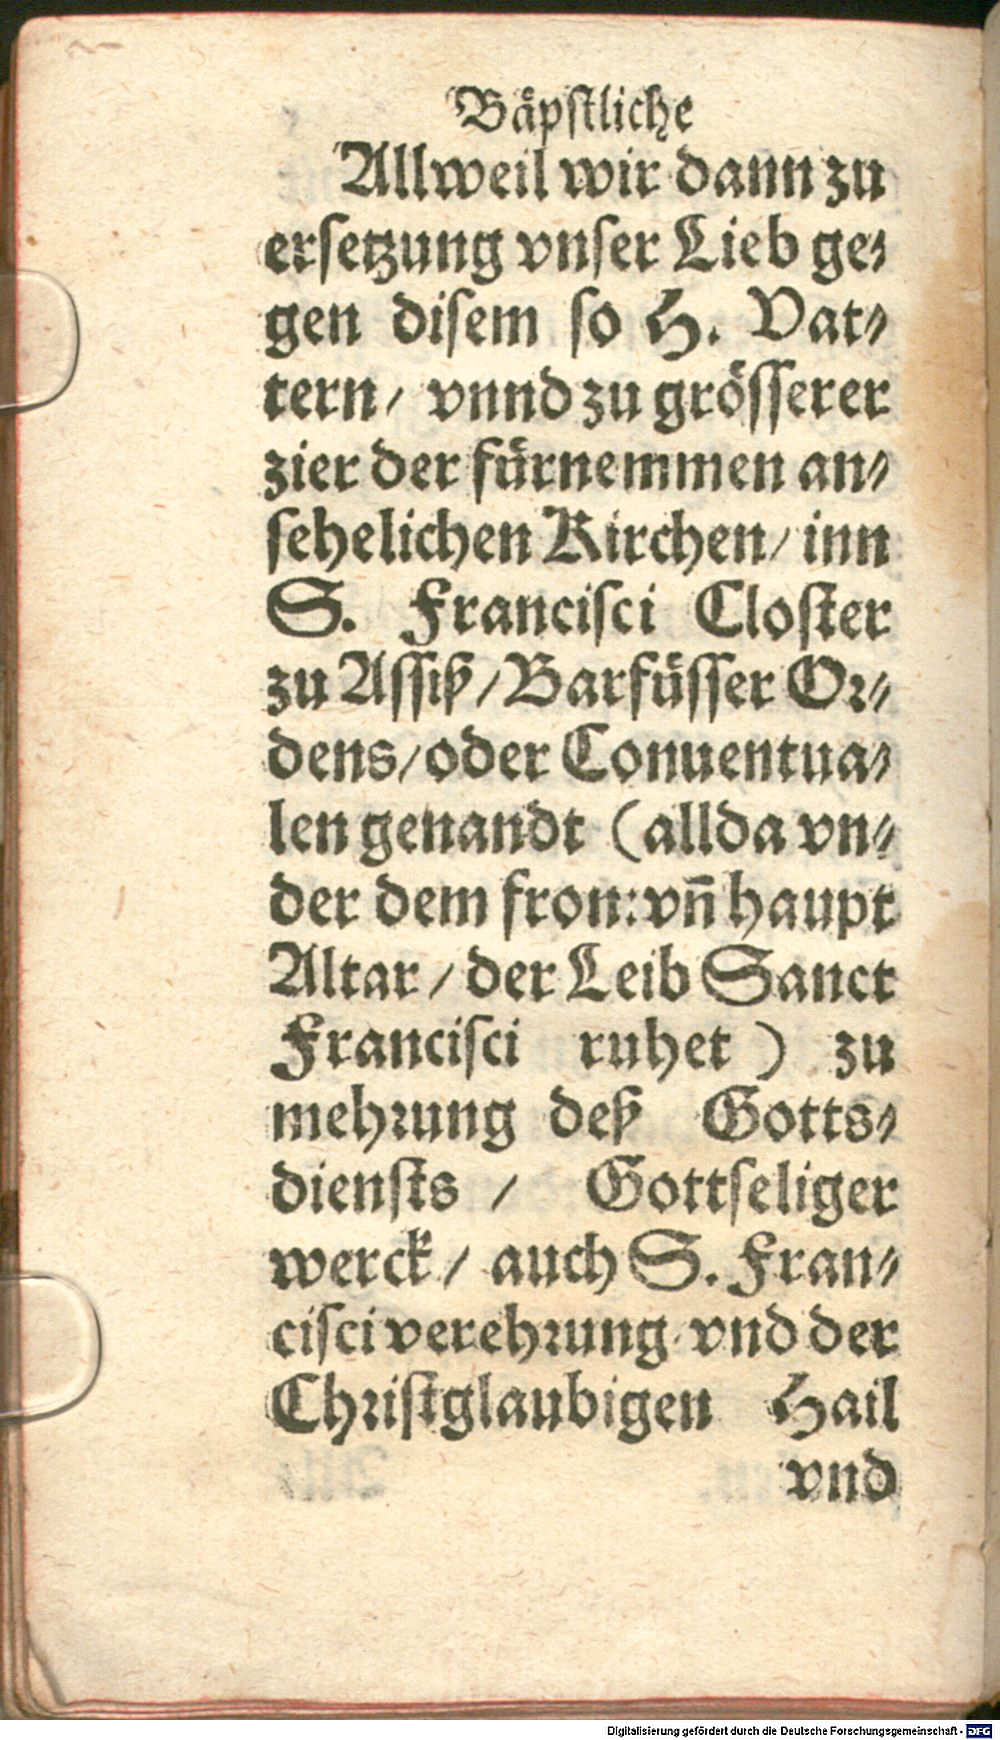 Bäpſtliche
Allweil wir dann zu
erſetzung vnſer Lieb ge⸗
gen diſem ſo H. Vat⸗
tern/ vnnd zu gröſſerer
zier der fürnemmen an⸗
ſehelichen Kirchen/ inn
S. Franciſci Cloſter
zu Aſſiß/ Barfüſſer Or⸗
dens/ oder Conuentua⸗
len genandt (allda vn⸗
der dem fron: vn̄ haupt
Altar/ der Leib Sanct
Franciſci ruhet) zu
mehrung deß Gotts⸗
dienſts/ Gottſeliger
werck/ auch S. Fran⸗
ciſci verehrung vnd der
Chriſtglaubigen Hail
vnd
Digitalisierung gefördert durch die Deutsche Forschungsgemeinschaft - DFG